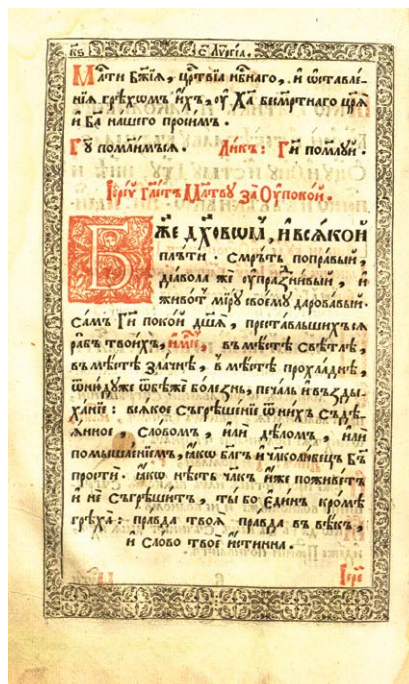 А҃ Лꙋргіа.
Млⷭ҇ти Бж҃їѧ, црⷭ҇твїѧ нбⷭ҇наго, и ѡставле-
нїѧ грѣхѡмъ ихъ, ꙋ Хⷭ҇а бесмр҃тнаго цр҃ѧ
и Бг҃а нашего просимъ.
Гꙋ҃ помлимъсѧ. Ликъ: Ги҃ помлꙋи.
Іереѵ глаⷭ҇тъ Млт҃вꙋ за Оупокой.
Бж҃е дх҃овѡмъ, и всѧкой
плъти. Смрътъ поправый,
діавола же ꙋпразнивый, и
живот мїрꙋ своемꙋ даровавый.
Самъ Ги҃ покой дш҃а, преставльшихъсѧ
рабъ твоихъ, имⷬ҇к, въ мѣстѣ свѣтлѣ,
въ мѣстѣ злачнѣ, в мѣстѣ прохладнѣ,
ѿнидꙋже ѿбѣже болезнь, печаль и възды-
ханїе: всѧкое съгрѣшенїе ѿ нихъ съдѣ-
ѧнное, словомъ, или дѣломъ, или
помышленїемъ, ꙗкѡ бл҃гъ и чл҃колюбецъ Бг҃ъ
прости. ꙗкѡ нѣсть чл҃къ иже поживетъ
и не съгрѣшитъ, ты бо единъ кромѣ
грѣха: правда твоѧ правда въ вѣкъ,
и слово твое истинна.
Іере